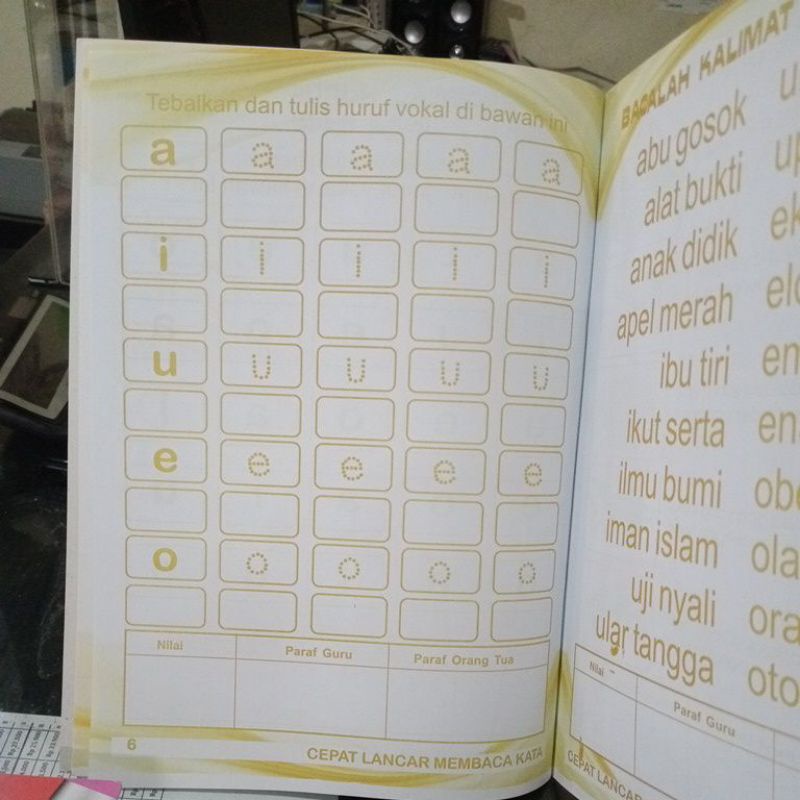 Tebalkan dan tulis huruf vokal di bawah ini
a a a a a
i i i i i
u u u u u
e e e e e
o o o o o
Nilai Paraf Guru Paraf Orang Tua
6 CEPAT LANCAR MEMBACA KATA
BACALAH KALIMAT
abu gosok
alat bukti
anak didik
apel merah
ibu tiri
ikut serta
ilmu bumi
iman islam
uji nyali
ular tangga
Nilai Paraf Guru
CEPAT LANCAR